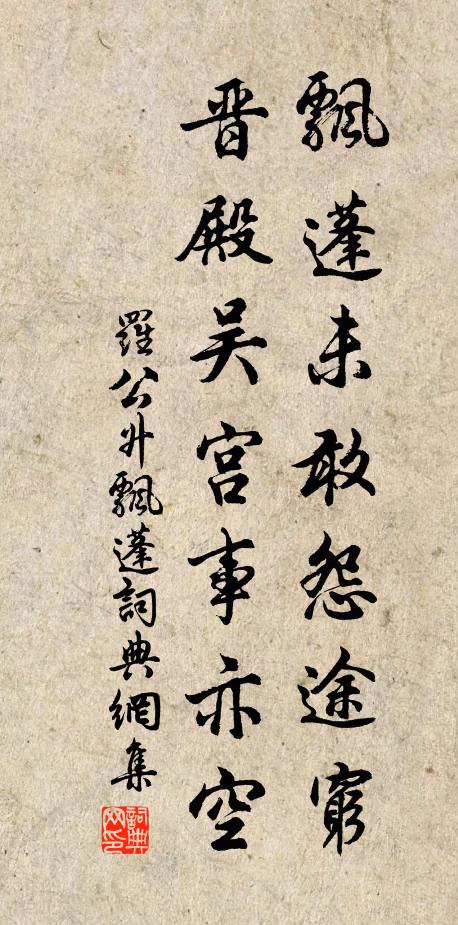 飄蓬未敢怨途窮
晋殿吴宫事亦空
羅公升飄蓬詞典網集
詞典網印